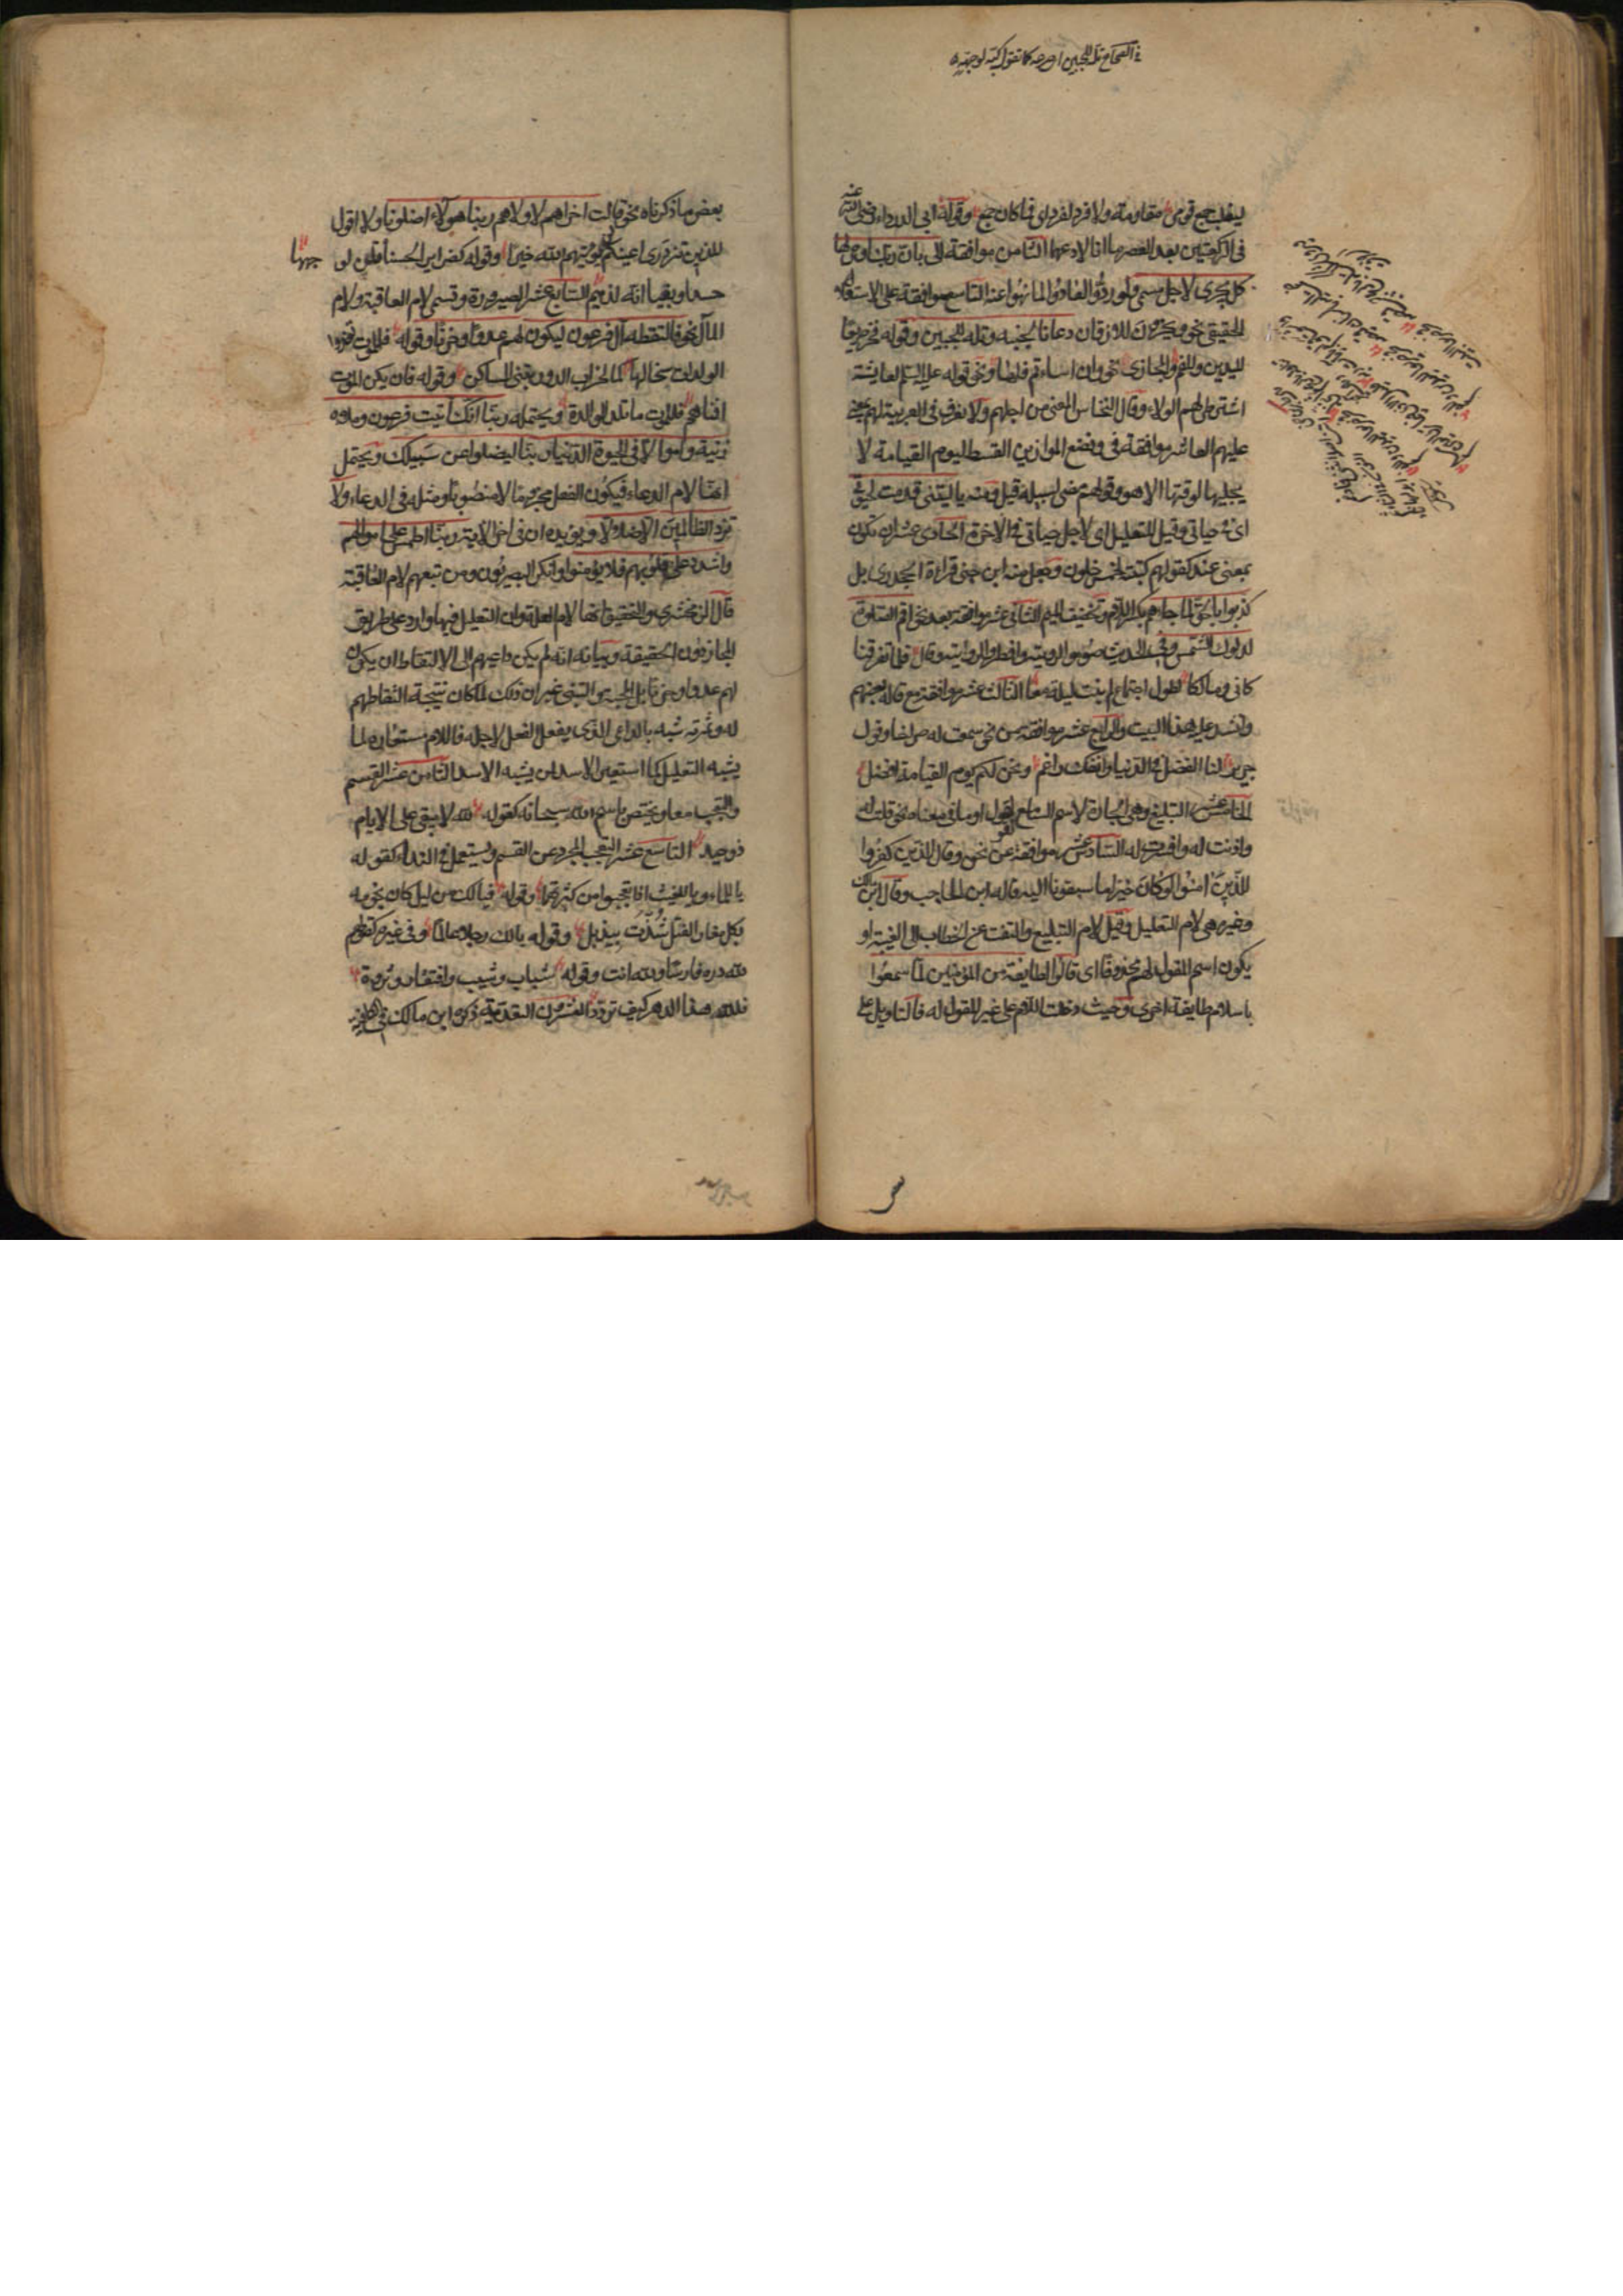 في الصحاح تله للجبين اي صرعه كما تقول كبه لوجهه
ليغلب جمع قومي مقاومة ولا فرد لفرد اي فما كان جمع وقول ابي الدرداء رضي الله عنه
في الركعتين بعد العصر ما انا لادعهما الثامن موافقة الى بان ربك اوحى لها
كل يجري لاجل مسمى ولو ردوا لعادوا لما نهوا عنه التاسع موافقة على الاستعلاء
الحقيقي نحو ويخرون للاذقان دعانا لجنبه وتله للجبين وقوله فخر صريعا
لليدين وللفم والمجازي نحو وان اسأتم فلها ونحو قوله عليه السلم لعايشة
اشترطي لهم الولاء وقال النحاس المعنى من اجلهم ولا نعرف في العربية لهم بمعنى
عليهم العاشر موافقة في ونضع الموازين القسط ليوم القيامة لا
يجليها لوقتها الا هو وقولهم مضى لسبيله قيل ومنه يا ليتني قدمت لحياتي
اي في حياتي وقيل للتعليل اي لاجل حياتي في الاخرة الحادي عشر ان تكون
بمعنى عند كقولهم كتبته لخمس خلون وجعل منه ابن جني قراءة الجحدري بل
كذبوا بالحق لما جاءهم بكسر اللام وتخفيف الميم الثاني عشر موافقة بعد نحو اقم الصلوة
لدلوك الشمس وفي الحديث صوموا لرويته وافطروا لرؤيته وقال فلما تفرقنا
كاني ومالكا لطول اجتماع لم نبت ليلة معا الثالث عشر موافقة مع قاله بعضهم
وانشد عليه هذا البيت والرابع عشر موافقة من نحو سمعت له صراخا وقول
جرير لنا الفضل في الدنيا وانفك راغم ونحن لكم يوم القيامة افضل
الخامس عشر التبليغ وهي الجارة لاسم السامع لقول او ما في معناه نحو قلت له
واذنت له وفسرت له السادس عشر موافقة عن نحو وقال الذين كفروا
للذين امنوا لو كان خيرا ما سبقونا اليه قاله ابن الحاجب وقال ابن مالك
وغيره هي لام التعليل وقيل لام التبليغ والتفت عن الخطاب الى الغيبة او
يكون اسم المقول لهم محذوفا اي قالوا لطايفة من المؤمنين لما سمعوا
باسلام طايفة اخرى وحيث دخلت اللام على غير المقول له فالتاويل على
بعض ما ذكرناه نحو قالت اخراهم لاولاهم ربنا هولاء اضلونا ولا اقول
للذين تزدري اعينكم لن يؤتيهم الله خيرا وقوله كضراير الحسنا قلن لو
جهها
حسدا وبغيا انه لذميم السابع عشر الصيرورة وتسمى لام العاقبة ولام
المآل نحو فالتقطه آل فرعون ليكون لهم عدوا وحزنا وقوله فللموت تغذو
الوالدات سخالها كما لخراب الدور تبنى المساكن وقوله فان يكن الموت
افناهم فللموت ما تلد الوالدة ويحتمله ربنا انك آتيت فرعون وملاءه
زينة واموالا في الحيوة الدنيا ربنا ليضلوا عن سبيلك ويحتمل
انها لام الدعاء فيكون الفعل مجزوما لا منصوبا ومثله في الدعاء ولا
تزد الظالمين الا ضلالا ويؤيده ان في اخر الآية ربنا اطمس على اموالهم
واشدد على قلوبهم فلا يؤمنوا وانكر البصريون ومن تبعهم لام العاقبة
قال الزمخشري والتحقيق انها لام العلة وان التعليل فيها وارد على طريق
المجاز دون الحقيقة وبيانه انه لم يكن داعيهم الى الالتقاط ان يكون
لهم عدوا وحزنا بل المحبة والتبني غير ان ذلك لما كان نتيجة التقاطهم
له وثمرته شبه بالداعي الذي يفعل الفعل لاجله فاللام مستعارة لما
يشبه التعليل كما استعير الاسد لمن يشبه الاسد الثامن عشر القسم
والتعجب معا ويختص باسم الله سبحانه كقوله لله لا يبقى على الايام
ذو حيد التاسع عشر التعجب المجرد عن القسم ويستعمل في النداء كقوله
يا للماء ويا للعشب اذا تعجبوا من كثرتهما وقوله فيا لك من ليل كان نجومه
بكل مغار الفتل شدت بيذبل وقوله يا لك رجلا عالما وفي غيره كقولهم
لله دره فارسا ولله انت وقوله شباب وشيب وافتقار وثروة
فلله هذا الدهر كيف ترددا العشرون التعدية ذكره ابن مالك في الكافية